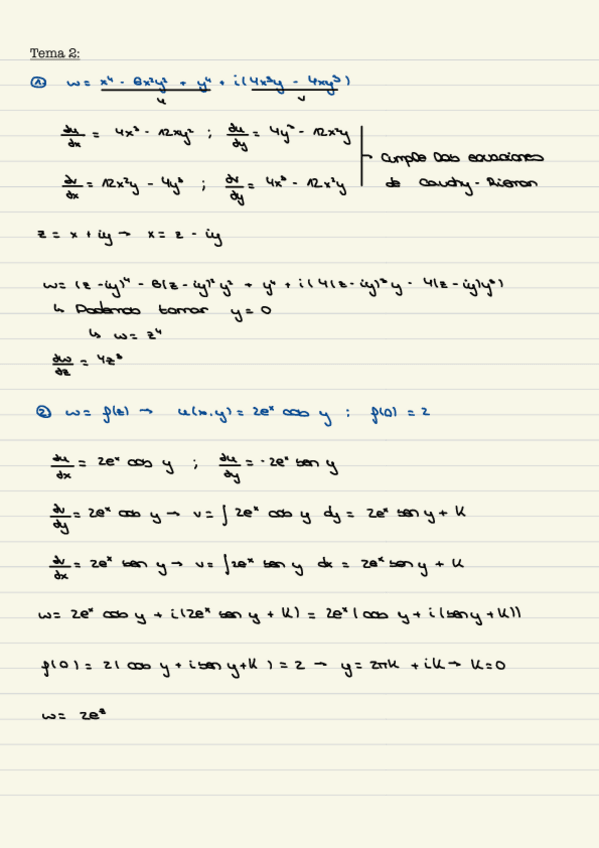 Tema 2:
① w = x⁴ - 6x²y² + y⁴ + i(4x³y - 4xy³)
u v
du/dx = 4x³ - 12xy² ; du/dy = 4y³ - 12x²y
cumple las ecuaciones
dv/dx = 12x²y - 4y³ ; dv/dy = 4x³ - 12x²y
de Cauchy-Rieman
z = x + iy → x = z - iy
w = (z - iy)⁴ - 6(z - iy)²y² + y⁴ + i(4(z - iy)³y - 4(z - iy)y³)
↳ Podemos tomar y = 0
↳ w = z⁴
dw/dz = 4z³
② w = f(z) → u(x,y) = 2eˣ cos y ; f(0) = 2
du/dx = 2eˣ cos y ; du/dy = -2eˣ sen y
dv/dy = 2eˣ cos y → v = ∫ 2eˣ cos y dy = 2eˣ sen y + K
dv/dx = 2eˣ sen y → v = ∫ 2eˣ sen y dx = 2eˣ sen y + K
w = 2eˣ cos y + i(2eˣ sen y + K) = 2eˣ(cos y + i(sen y + K))
f(0) = 2(cos y + i sen y + K) = 2 → y = 2πK + iK → K = 0
w = 2eᶻ